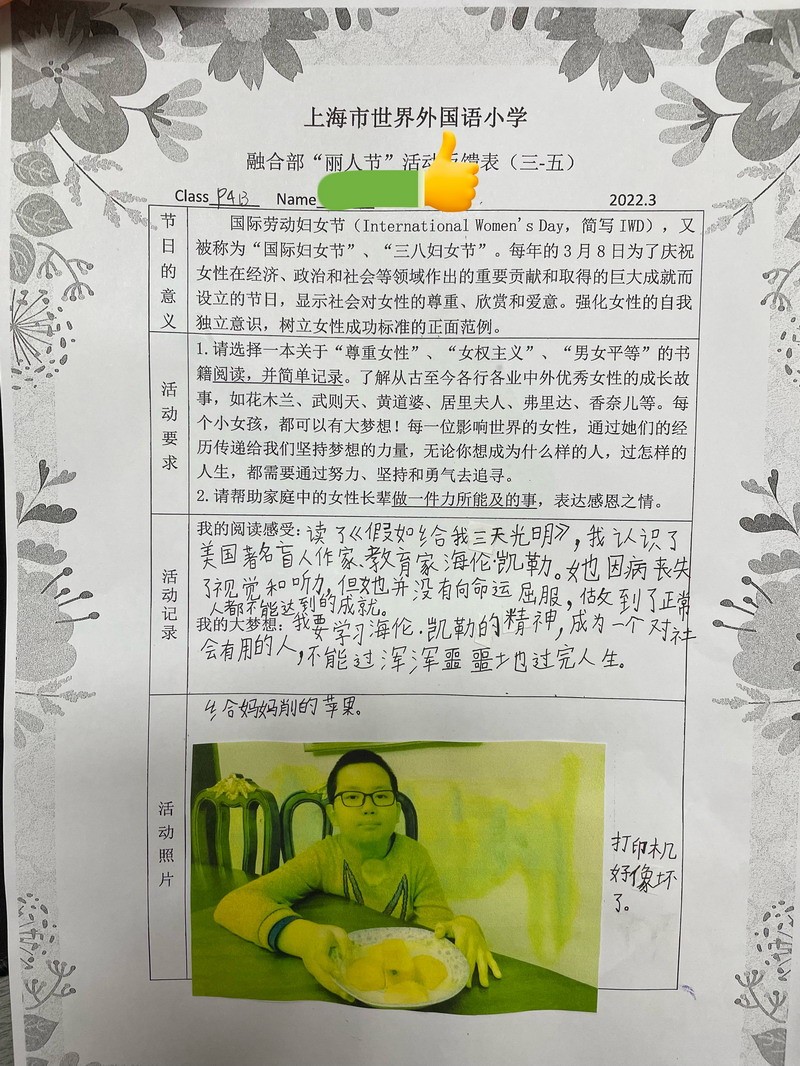 上海市世界外国语小学
融合部“丽人节”活动反馈表（三-五）
Class P4B Name 2022.3
节日的意义
国际劳动妇女节（International Women's Day，简写 IWD），又
被称为“国际妇女节”、“三八妇女节”。每年的 3 月 8 日为了庆祝
女性在经济、政治和社会等领域作出的重要贡献和取得的巨大成就而
设立的节日，显示社会对女性的尊重、欣赏和爱意。强化女性的自我
独立意识，树立女性成功标准的正面范例。
活动要求
1.请选择一本关于“尊重女性”、“女权主义”、“男女平等”的书
籍阅读，并简单记录。了解从古至今各行各业中外优秀女性的成长故
事，如花木兰、武则天、黄道婆、居里夫人、弗里达、香奈儿等。每
个小女孩，都可以有大梦想！每一位影响世界的女性，通过她们的经
历传递给我们坚持梦想的力量，无论你想成为什么样的人，过怎样的
人生，都需要通过努力、坚持和勇气去追寻。
2.请帮助家庭中的女性长辈做一件力所能及的事，表达感恩之情。
活动记录
我的阅读感受：读了《假如给我三天光明》，我认识了
美国著名盲人作家、教育家海伦·凯勒。她因病丧失
了视觉和听力，但她并没有向命运屈服，做到了正常
人都不能达到的成就。
我的大梦想：我要学习海伦·凯勒的精神，成为一个对社
会有用的人，不能过浑浑噩噩地过完人生。
活动照片
给妈妈削的苹果。
打印机
好像坏
了。